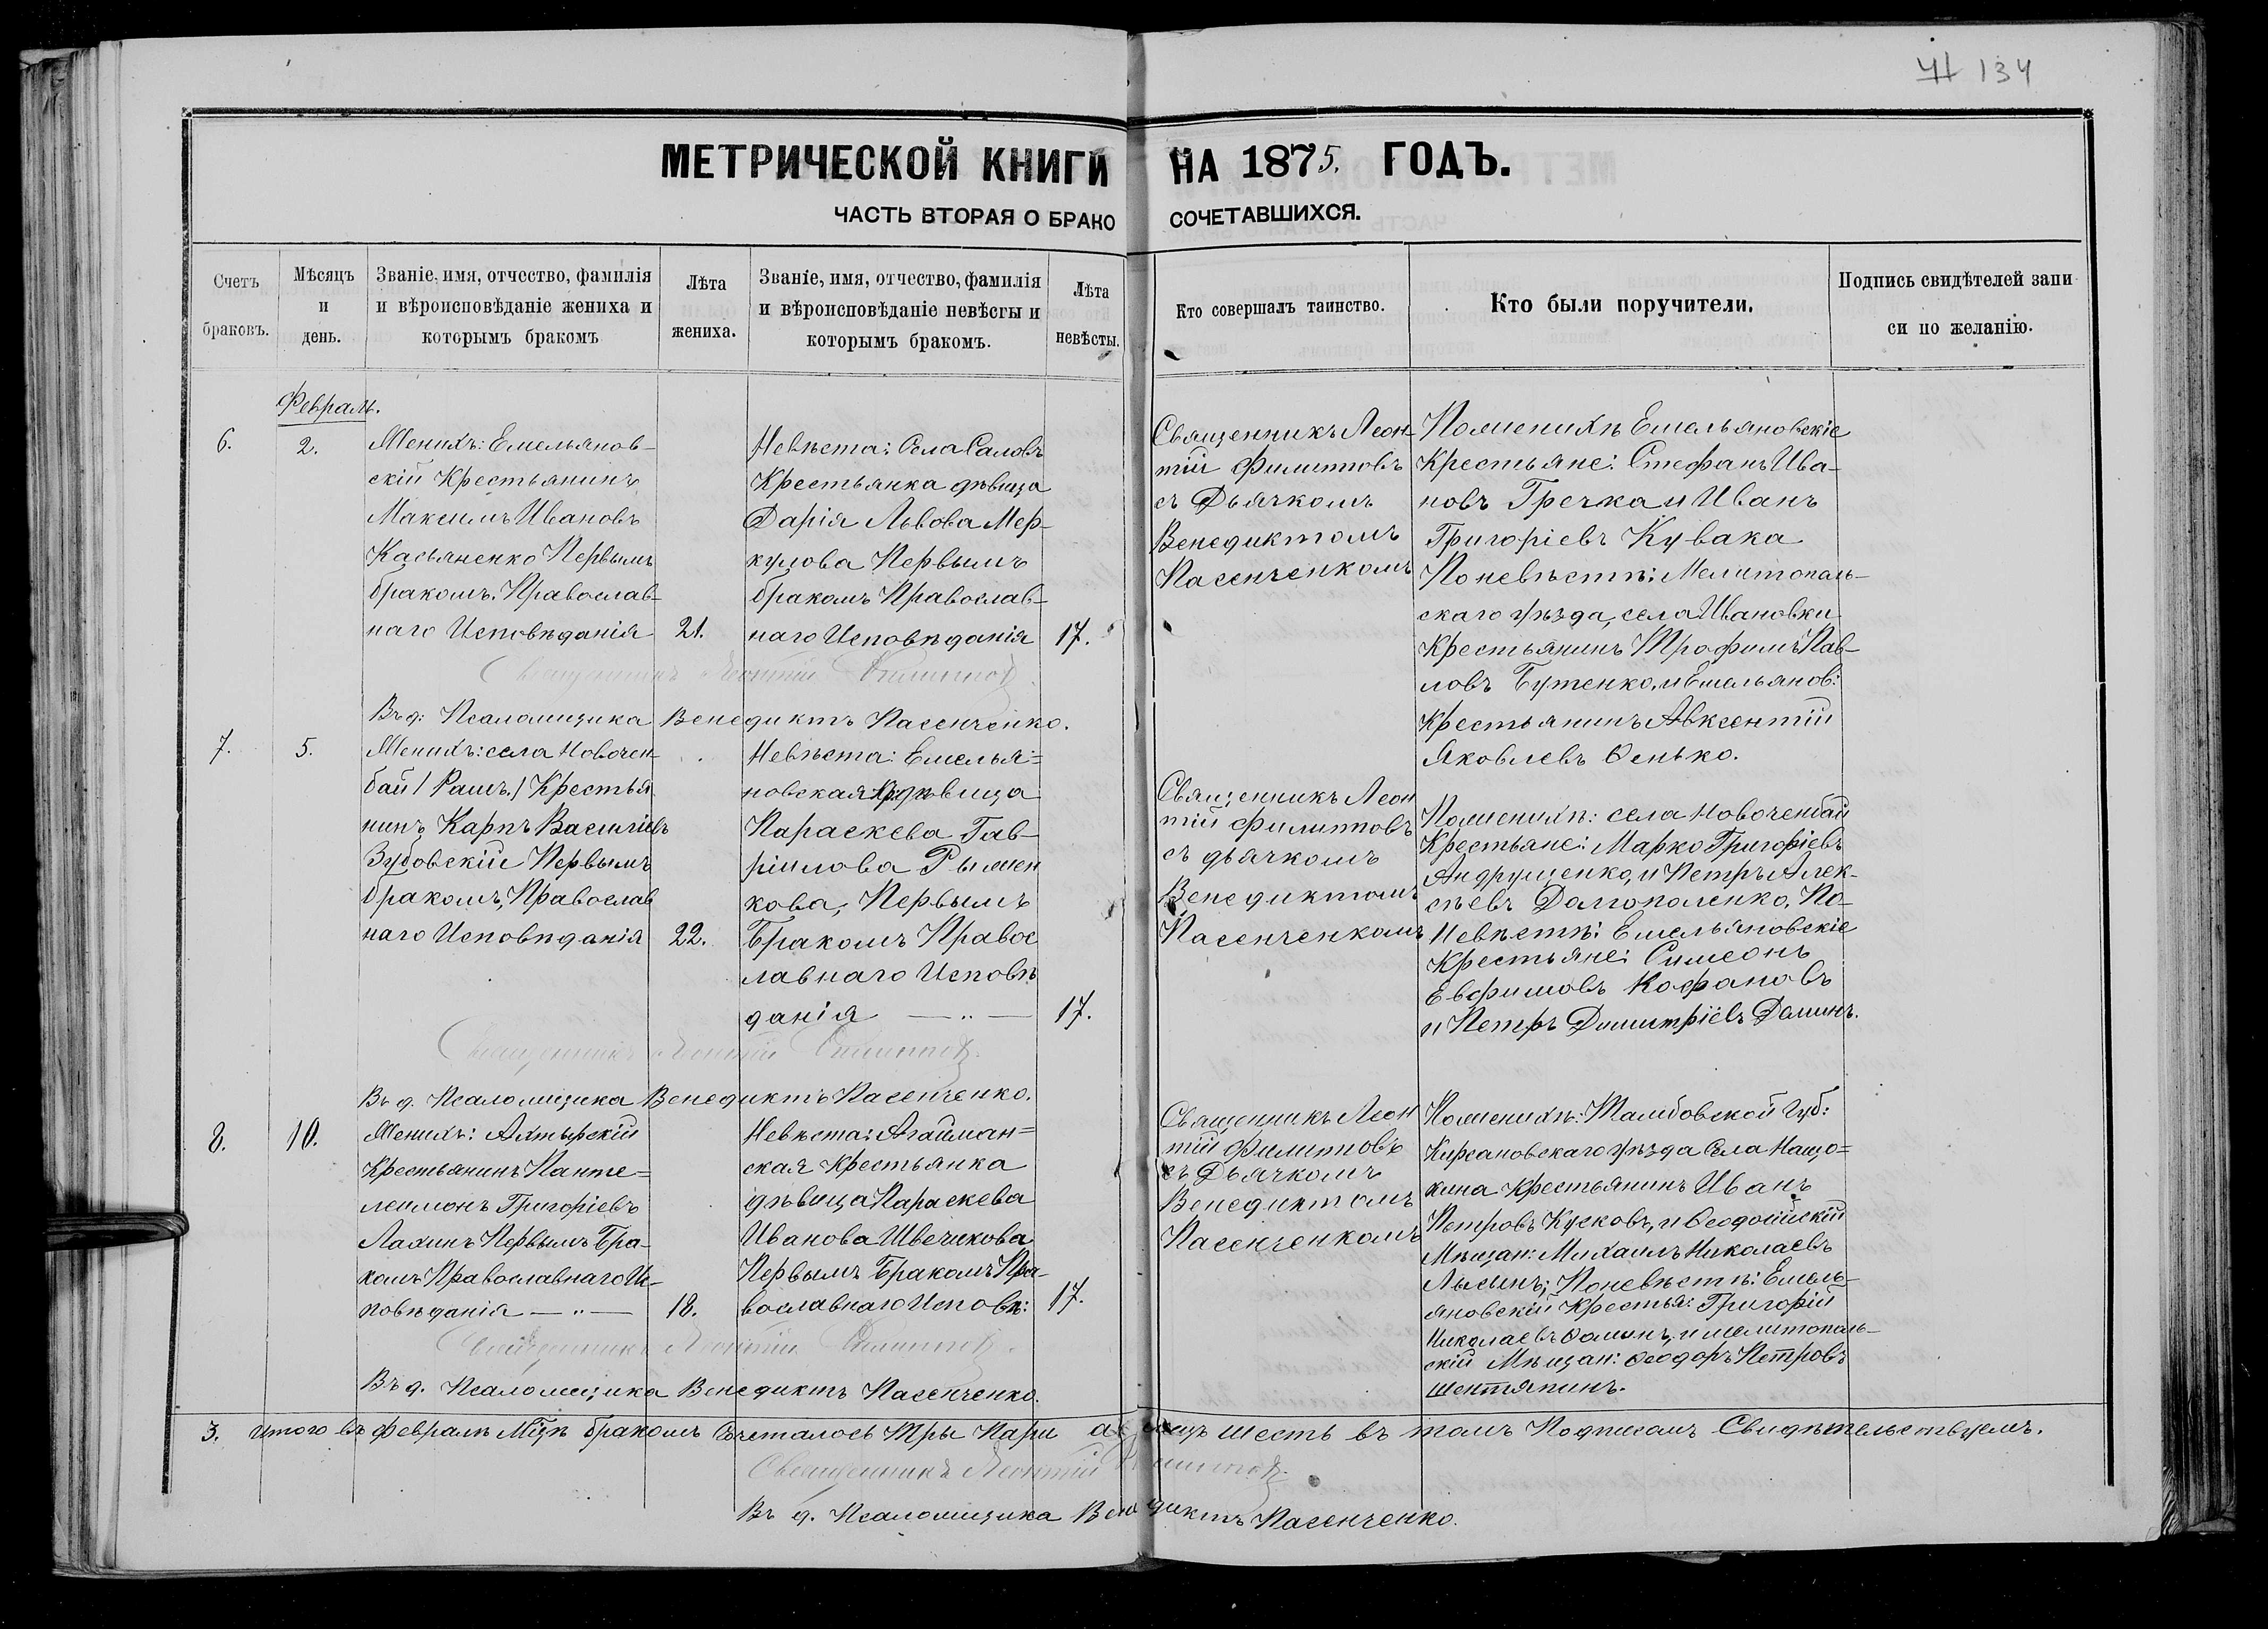 134
МЕТРИЧЕСКОЙ КНИГИ НА 1875. ГОДЪ.
ЧАСТЬ ВТОРАЯ О БРАКОСОЧЕТАВШИХСЯ.
Счетъ браковъ.
Мѣсяцъ и день.
Званіе, имя, отчество, фамилія
и вѣроисповѣданіе жениха и
которымъ бракомъ
Лѣта жениха.
Званіе, имя, отчество, фамилія
и вѣроисповѣданіе невѣсты и
которымъ бракомъ.
Лѣта невѣсты.
Кто совершалъ таинство.
Кто были поручители.
Подпись свидѣтелей запи
си по желанію.
Февраль.
6.
2.
Женихъ: Емельянов-
скій Крестьянинъ
Максимъ Ивановъ
Касьяненко Первымъ
бракомъ. Православ-
наго Исповѣданія
21.
Невѣста: Села Саловъ
Крестьянка дѣвица
Дарія Львова Мер-
кулова Первымъ
бракомъ Православ-
наго Исповѣданія
17.
Священникъ Леон-
тій Филипповъ
съ Дьячкомъ
Венедиктомъ
Пасенченкомъ
Поженихѣ Емельяновскіе
Крестьяне: Стефанъ Ива-
новъ Гречка и Иванъ
Григоріевъ Кувака
По невѣстѣ: Мелитополь-
скаго уѣзда, села Ивановки
Крестьянинъ Трофимъ Пав-
ловъ Бутенко, и Емельянов:
Крестьянинъ Авксентій
Яковлевъ Сенько.
Священникъ Леонтій Филиппов
Въ д: Псаломщика Венедиктъ Пасенченко.
7.
5.
Женихъ: села Новочен-
бай / Рашъ. / Крестья
нинъ Карпъ Василіевъ
Зубовскій Первымъ
бракомъ, Православ
наго Исповѣданія
22.
Невѣста: Емелья=
новская Кр: дѣвица
Параскева Гав-
ріилова Рымен
кова, Первымъ
Бракомъ Правос
лавнаго Исповѣ
данія — „ —
17.
Священникъ Леон
тій Филипповъ
съ дьячкомъ
Венедиктомъ
Пасенченкомъ
Поженихѣ: села Новоченбай
Крестьяне: Марко Григоріевъ
Андрущенко, и Петръ Алек-
сѣевъ Долгополенко. По-
Невѣстѣ: Емельяновскіе
Крестьяне: Симеонъ
Евфимовъ Кофановъ
и Петръ Димитріевъ Деминъ.
Священникъ Леонтій Филиппов
Въ д. Псаломщика Венедиктъ Пасенченко.
8.
10.
Женихъ: Ахтырскій
Крестьянинъ Панте=
леимонъ Григоріевъ
Лахинъ Первымъ Бра-
комъ Православнаго Ис-
повѣданія — „ —
18.
Невѣста: Агайман=
ская Крестьянка
дѣвица Параскева
Иванова Швечикова
Первымъ Бракомъ Пра-
вославнаго Исповѣ:
17.
Священникъ Леон
тій Филипповъ
съ Дьячкомъ
Венедиктомъ
Пасенченкомъ
Поженихѣ: Тамбовской Губ:
Кирсановскаго уѣзда Села Нащо=
кина Крестьянинъ Иванъ
Петровъ Кусковъ, и Ѳеодосійскій
Мѣщан: Михаилъ Николаевъ
Лысинъ; Поневѣстѣ: Емель-
яновскій Крестья: Григорій
Николаевъ Ѳоминъ, и мелитополь-
скій Мѣщан: Ѳеодоръ Петровъ
Шентяпинъ.
Священникъ Леонтій Филиппов.
Въ д. Псаломщика Венедиктъ Пасенченко.
3. Итого въ Февралѣ М-цѣ бракомъ Сочеталось Три Пары а лицъ шесть въ томъ Подписомъ Свидѣтельствуемъ.
Священникъ Леонтій Филиппов.
Въ д. Псаломщика Венедиктъ Пасенченко.